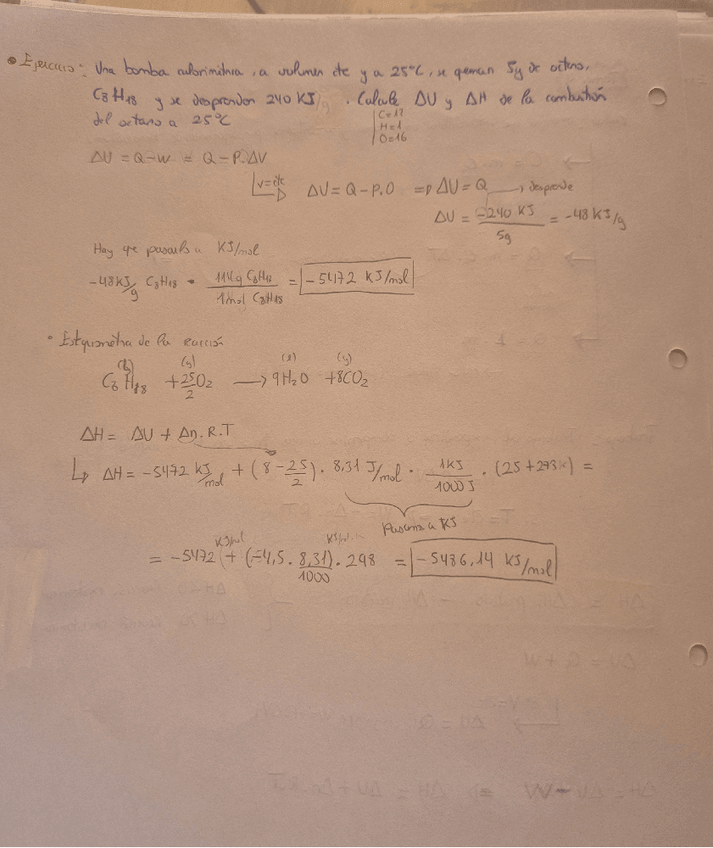 • Ejercicio: Una bomba calorimétrica, a volumen cte y a 25ºC, se queman 5g de octano,
C8H18 y se desprenden 240 KJ/g. Calcula ΔU y ΔH de la combustión
del octano a 25ºC
C=12
H=1
O=16
ΔU = Q-W = Q - P.ΔV
V=cte ΔU = Q - P.0 => ΔU = Q → desprende
ΔU = -240 KJ / 5g = -48 KJ/g
Hay que pasarlo a KJ/mol
-48 KJ/g C8H18 · 114g C8H18 / 1mol C8H18 = -5472 KJ/mol
• Estequiometría de la reacción
(l) (g) (l) (g)
C8H18 + 25/2 O2 → 9H2O + 8CO2
ΔH = ΔU + Δn.R.T
↳ ΔH = -5472 KJ/mol + (8 - 25/2) · 8,31 J/mol · 1KJ/1000J · (25+273K) =
Pasarlo a KJ
KJ/mol
= -5472 + (-4,5 · 8,31/1000) · 298 = -5486,14 KJ/mol